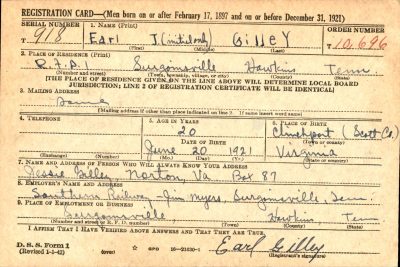 REGISTRATION CARD—(Men born on or after February 17, 1897 and on or before December 31, 1921)
SERIAL NUMBER 1. NAME (Print) ORDER NUMBER
T 918 Earl J. (initial only) Gilley T 10,696
(First) (Middle) (Last)
2. PLACE OF RESIDENCE (Print)
R.F.D. 1 Surgoinsville Hawkins Tenn
(Number and street) (Town, township, village, or city) (County) (State)
[THE PLACE OF RESIDENCE GIVEN ON THE LINE ABOVE WILL DETERMINE LOCAL BOARD
JURISDICTION; LINE 2 OF REGISTRATION CERTIFICATE WILL BE IDENTICAL]
3. MAILING ADDRESS
Same
[Mailing address if other than place indicated on line 2. If same insert word same]
4. TELEPHONE 5. AGE IN YEARS 6. PLACE OF BIRTH
20 Clinchport (Scott Co.)
DATE OF BIRTH (Town or county)
June 20 1921 Virginia
(Exchange) (Number) (Mo.) (Day) (Yr.) (State or country)
7. NAME AND ADDRESS OF PERSON WHO WILL ALWAYS KNOW YOUR ADDRESS
Jessie Gilley, Norton Va Box 87
8. EMPLOYER'S NAME AND ADDRESS
Southern Railway - Jim Myers, Surgoinsville, Tenn.
9. PLACE OF EMPLOYMENT OR BUSINESS
Surgoinsville Hawkins Tenn
(Number and street or R. F. D. number) (Town) (County) (State)
I AFFIRM THAT I HAVE VERIFIED ABOVE ANSWERS AND THAT THEY ARE TRUE.
D. S. S. Form 1
(Revised 1-1-42) (over) GPO 16—21630-1 Earl Gilley
(Registrant's signature)